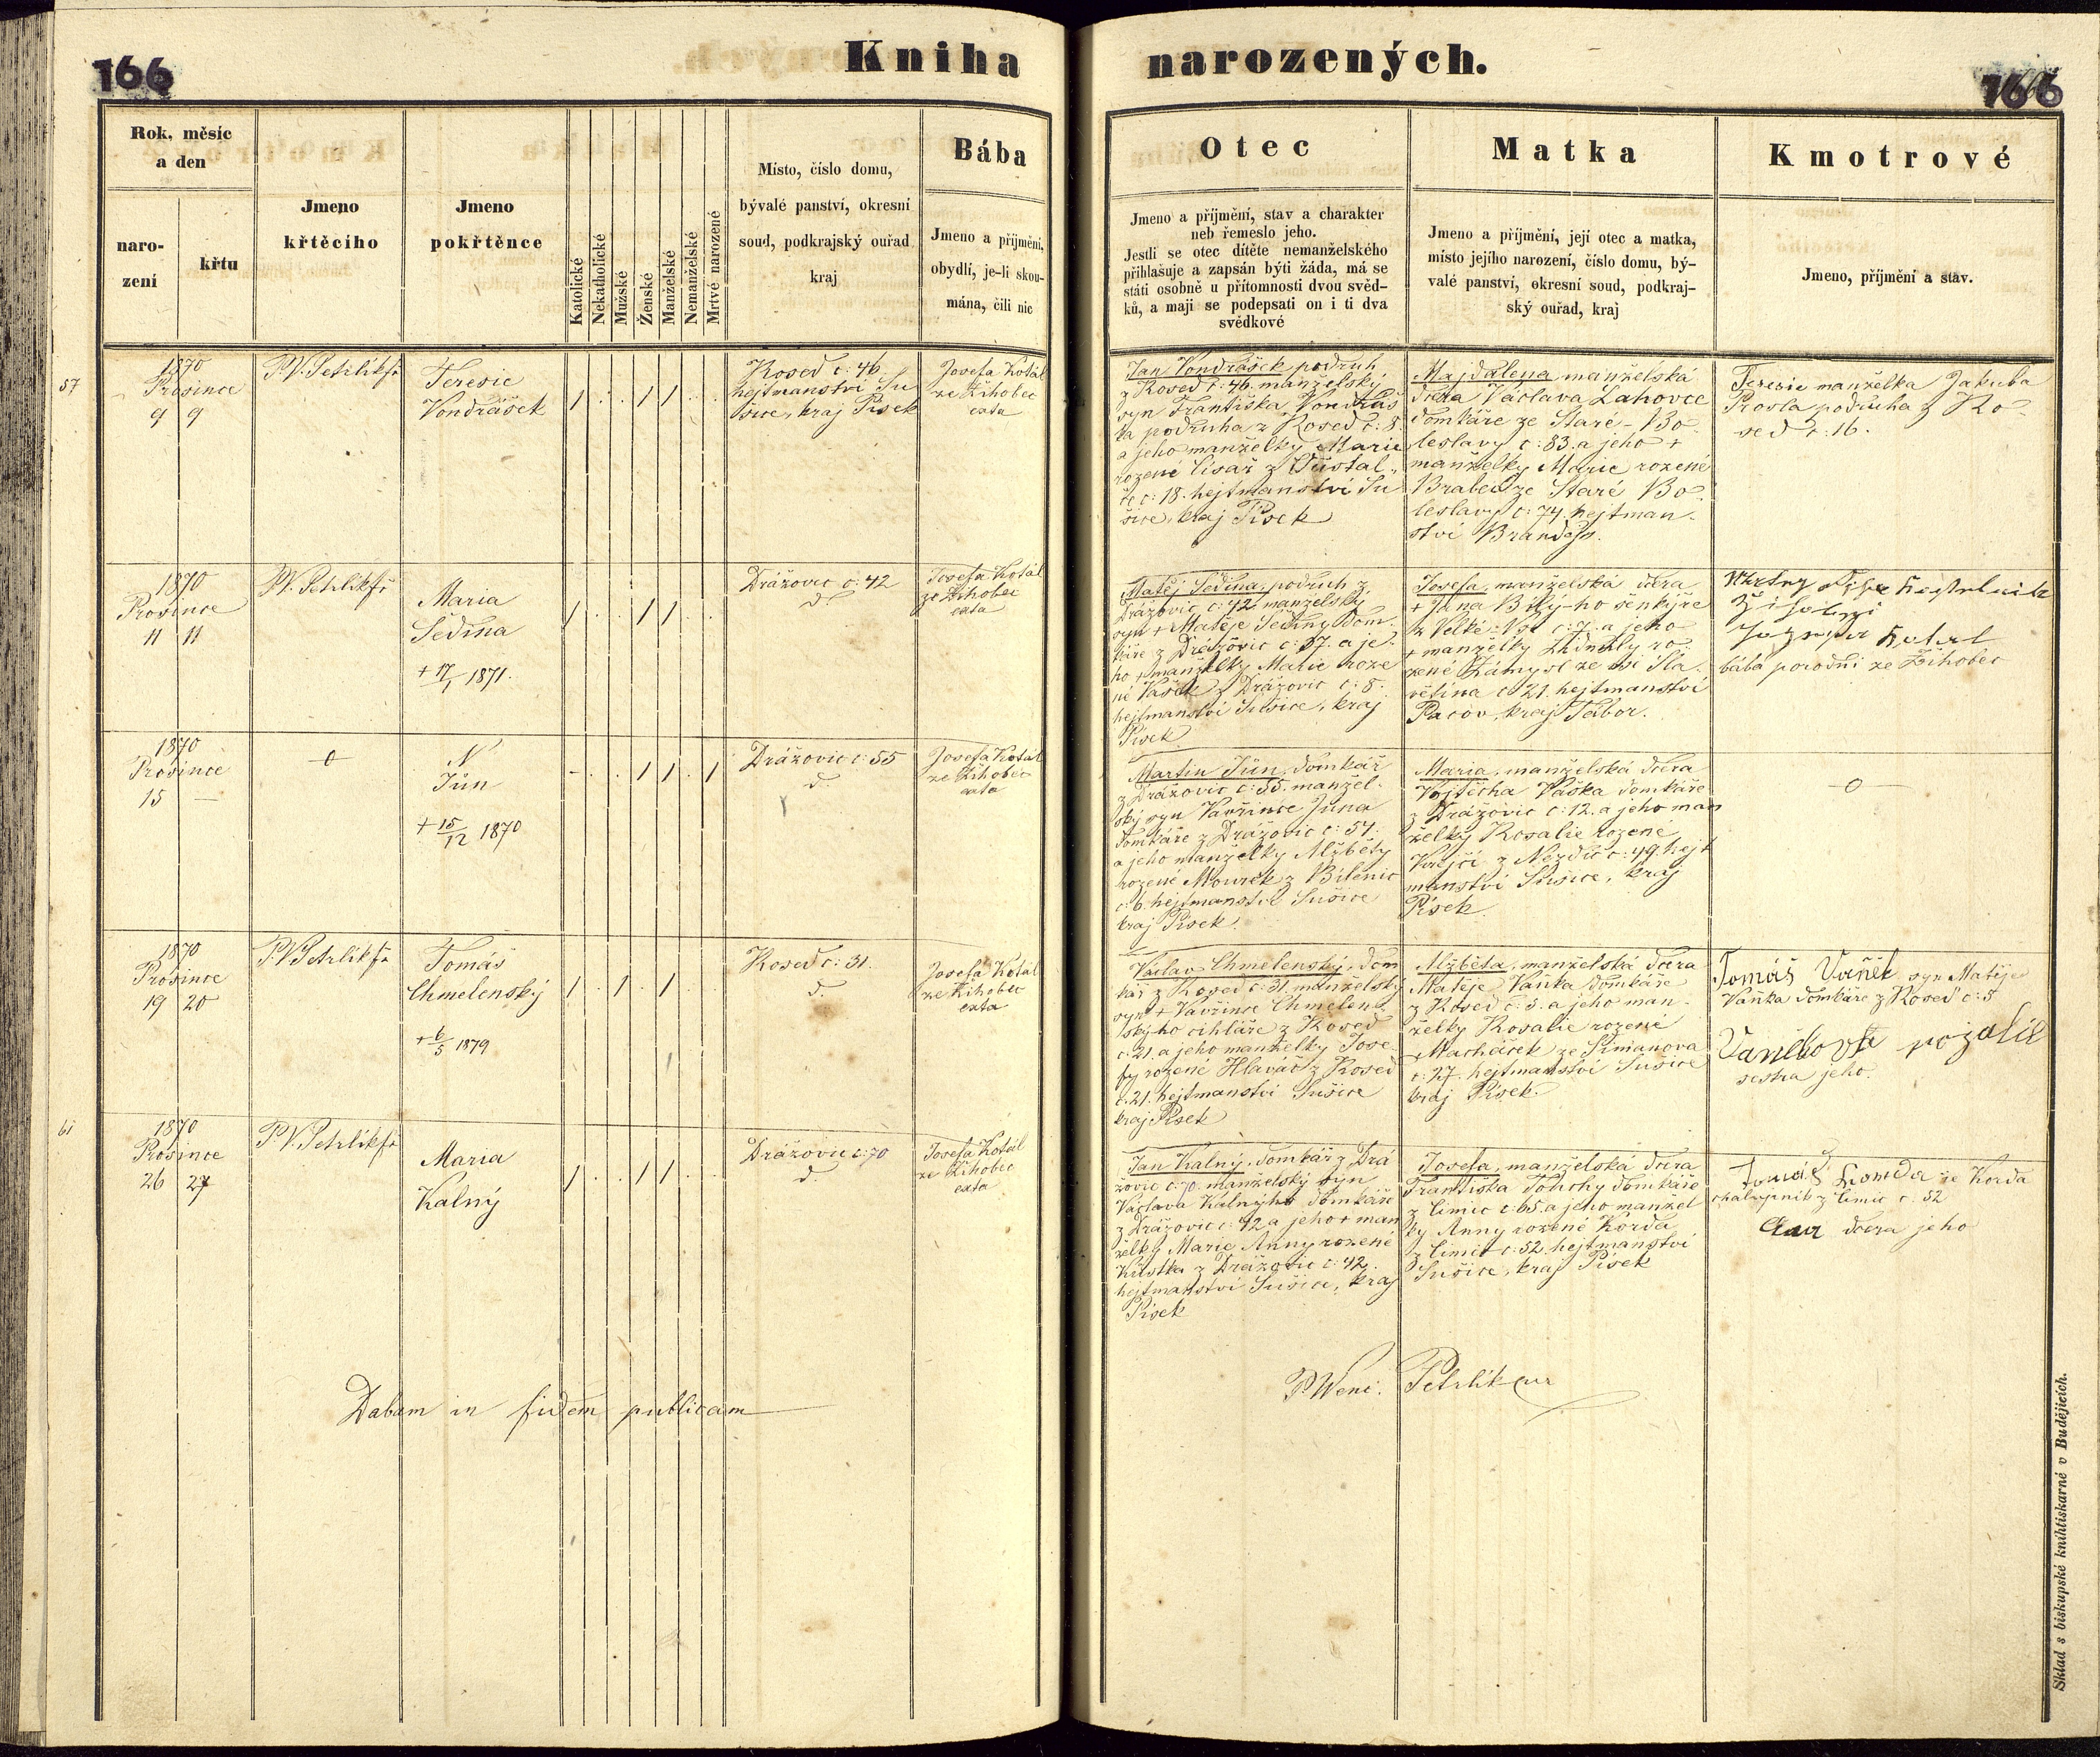 166
Kniha narozených.
166
Rok, měsíc
a den
naro-
zení
křtu
Jmeno
křtěcího
Jmeno
pokřtěnce
Katolické
Nekatholické
Mužské
Ženské
Manželské
Nemanželské
Mrtvě narozené
Místo, číslo domu,
bývalé panství, okresní
soud, podkrajský ouřad
kraj
Bába
Jmeno a příjmění,
obydlí, je-li skou-
mána, čili nic
Otec
Jmeno a příjmění, stav a charakter
neb řemeslo jeho.
Jestli se otec dítěte nemanželského
přihlašuje a zapsán býti žáda, má se
státi osobně u přítomnosti dvou svěd-
ků, a mají se podepsati on i ti dva
svědkové
Matka
Jmeno a příjmění, její otec a matka,
místo jejího narození, číslo domu, bý-
valé panství, okresní soud, podkraj-
ský ouřad, kraj
Kmotrové
Jmeno, příjmění a stav.
57
1870
Prosince
9 9
P.V. Petrlík fř
Teresie
Vondrášek
Kosed č: 46
hejtmanství Su
šice, kraj Písek
Josefa Kotál
ze Žihobec
exta
Jan Vondrášek podruh
z Kosed č: 46. manželský
syn Františka Vondráš
ka podruha z Kosed č: 8.
a jeho manželky Marie
rozené Císař z
č: 18. hejtmanství Su
šice, kraj Písek
Majdalena manželská
dcera Václava Lahovce
domkáře ze Staré-Bo
leslavy č: 83. a jeho +
manželky Marie rozené
Brabec ze Staré Bo
leslavy č: 74. hejtman-
ství Brandejs.
Teresie manželka Jakuba
Prosla podruha z Ko-
sed č: 16.
1870
Prosince
11 11
P.V. Petrlík fř
Maria
Sedina
+ 17/1 1871.
Drážovic č: 42
d.
Josefa Kotál
ze Žihobec
exta
Matěj Sedina, podruh z
Drážovic č: 42, manželský
syn + Matěje Sediny dom-
káře z Drážovic č: 37. a je-
ho + manželky Marie roze
né Vašek z Drážovic č: 8.
hejtmanství Sušice, kraj
Písek
Josefa, manželská dcera
+ Jana Bílý-ho šenkýře
z Velké- č: 7. a jeho
+ manželky Lidmily ro-
zené ze vsi Sla-
větína č: 21. hejtmanství
Pacov, kraj Tábor.
bába porodní ze Žihobec
1870
Prosince
15 —
o
N
Jún
+ 15/12 1870
Drážovic č: 55
d.
Josefa Kotál
ze Žihobec
exta
Martin Jún, domkář
z Drážovic č: 55. manžel-
ský syn Vavřince Júna
domkáře z Drážovic č: 54.
a jeho manželky Alžběty
rozené Mourek z Bílenic
č: 6. hejtmanství Sušice
kraj Písek.
Maria, manželská dcera
Vojtěcha Vaška domkáře
z Drážovic č: 12. a jeho man
želky Rosalie rozené
Krejčí z Nezdic č: 49. hejt
manství Sušice, kraj
Písek.
—o—
1870
Prosince
19 20
P.V. Petrlík fř
Tomáš
Chmelenský
+ 6/5 1879
Kosed č: 31.
d.
Josefa Kotál
ze Žihobec
exta
Václav Chmelenský, dom
kář z Kosed č: 31. manželský
syn + Vavřince Chmelen-
ský-ho cihláře z Kosed
č: 21. a jeho manželky Jose-
fy rozené Hlaváč z Kosed
č: 21. hejtmanství Sušice
kraj Písek
Alžběta, manželská dcera
Matěje Vaňka domkáře
z Kosed č: 5. a jeho man-
želky Rosalie rozené
Macháček ze Simanova
č: 27. hejtmanství Sušice
kraj Písek.
Tomáš Vaněk syn Matěje
Vaňka domkáře z Kosed č: 5
Vaňkova rozalie
sestra jeho.
61
1870
Prosince
26 27
P.V. Petrlík fř
Maria
Kalný
Drážovic č: 70
d.
Josefa Kotál
ze Žihobec
exta
Jan Kalný, domkář z Drá
žovic č: 70. manželský syn
Václava Kalný-ho domkáře
z Drážovic č: 42 a jeho + man
želky Marie Anny rozené
Kůstka z Drážovic č: 42.
hejtmanství Sušice, kraj
Písek
Josefa, manželská dcera
Františka domkáře
z Čimic č: 65. a jeho manžel
ky Anny rozené Korda
z Čimic č: 52. hejtmanství
Sušice, kraj Písek
Tomáš Korda ze Korda
chalupník z Čimic č: 52
dcera jeho
Dabam in fidem publicam
P. Wenc. Petrlík
Sklad s biskupské knihtiskarně v Budějicích.